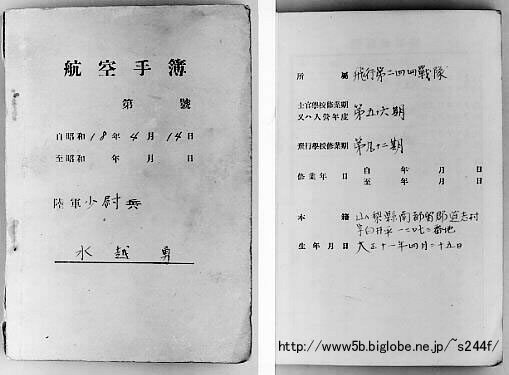 航空手簿
第 號
自昭和18年4月14日
至昭和 年 月 日
陸軍少尉兵
水越勇
所屬 飛行第二四四戰隊
士官學校修業期
又ハ入營年度 第五十六期
飛行學校修業期 第九十二期
修業年日 自 年 月 日
至 年 月 日
本籍 山梨縣南都留郡道志村
生年月日 大正十一年四月二十五日
http://www5b.biglobe.ne.jp/~s244f/